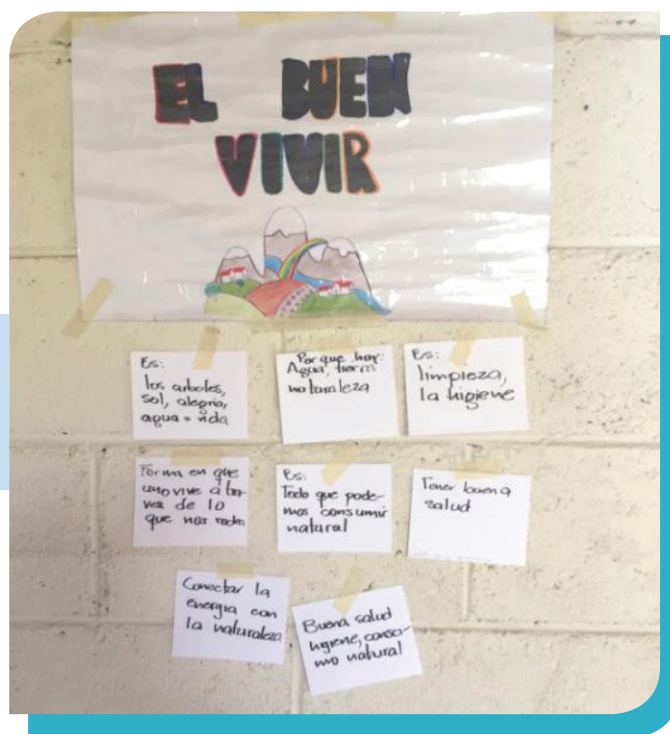 EL BUEN
VIVIR
Es:
los arboles,
sol, alegria,
agua = vida
Por que hay:
Agua, tierra
naturaleza
Es:
limpieza,
la higiene
Forma en que
uno vive a tra-
vez de lo
que nos rodea
Es:
Todo que pode-
mos consumir
natural
Tener buena
salud
Conectar la
energia con
la naturaleza
Buena salud
higiene, consu-
mo natural